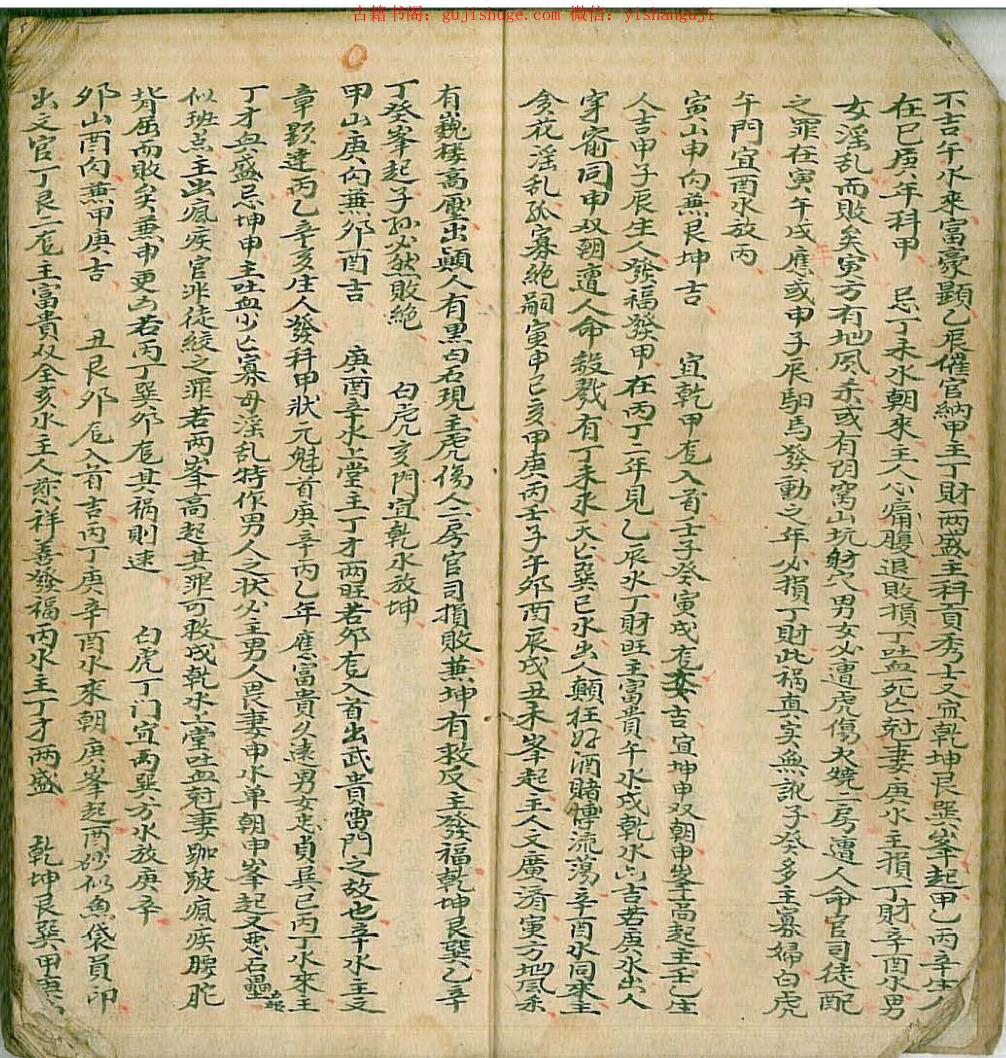 古籍书阁：gujishuge.com 微信：yishanguji
不吉午水來富豪顯乙辰催官納甲主丁財两盛主科貢秀士又宜乾坤艮巽峯起甲乙丙辛生人
在巳庚年科甲　忌丁未水朝來主人心痛腹退敗損丁吐血死亡尅妻庚水主損丁財辛酉水男
女淫乱而敗矣寅方有地風杀或有窝山坑射穴男女必遭虎傷火燒一房遭人命官司徒配
之罪在寅午戌應或申子辰駟馬發動之年必損丁財此禍真实無訛子癸多主寡婦白虎
午門宜酉水放丙
寅山申向兼艮坤吉　宜乾甲龙入首壬子癸寅戌龙吉宜坤申双朝申峯高起主壬乙生
人吉甲子辰生人發福發甲在丙丁二年見乙辰水丁財旺主富貴午水戌乾水吉若庚水出人
穿窬同申双朝遭人命殺戮有丁未水夭亡巽巳水出人顛狂好酒賭博流蕩辛酉水同來主
貪花淫乱孤寡絶嗣寅申巳亥甲庚丙壬子午卯酉辰戌丑未峯起主人文廣濟寅方地風杀
有巍樓高壓出顛人有黑白石現主虎傷人二房官司損敗兼坤有救反主發福乾坤艮巽乙辛
丁癸峯起子孙必然敗絶　白虎亥門宜乾水放坤
甲山庚向兼卯酉吉　庚酉辛水上堂主丁才两旺若卯龙入首出武貴當門之故也辛水主文
章顕達丙乙辛亥生人發科甲狀元魁首庚辛丙乙年應富貴久遠男女忠貞巽巳丙丁水來主
丁才血盛忌坤申主吐血少亡寡母淫乱特作男人之状必主男人畏妻申水单朝申峯起又恶石壘
似班点主出瘋疾官非徒絞之罪若两峯高起其罪可救戌乾水上堂吐血尅妻跏跛瘋疾腰駝
背屈而敗矣兼申更可若丙丁巽卯龙其禍則速　白虎丁门宜丙巽方水放庚辛
卯山酉向兼甲庚吉　丑艮卯龙入首吉丙丁庚辛酉水來朝庚峯起酉砂似魚袋員印
出文官丁艮二龙主富貴双全亥水主人慈祥善發福丙水主丁才两盛　乾坤艮巽甲庚